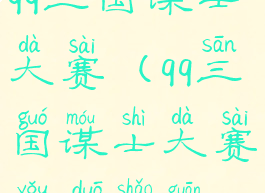 qq三国谋士
dà sài sān
大赛（qq三
guó móu shì dà sài
国谋士大赛
yǒu duō shǎo guān